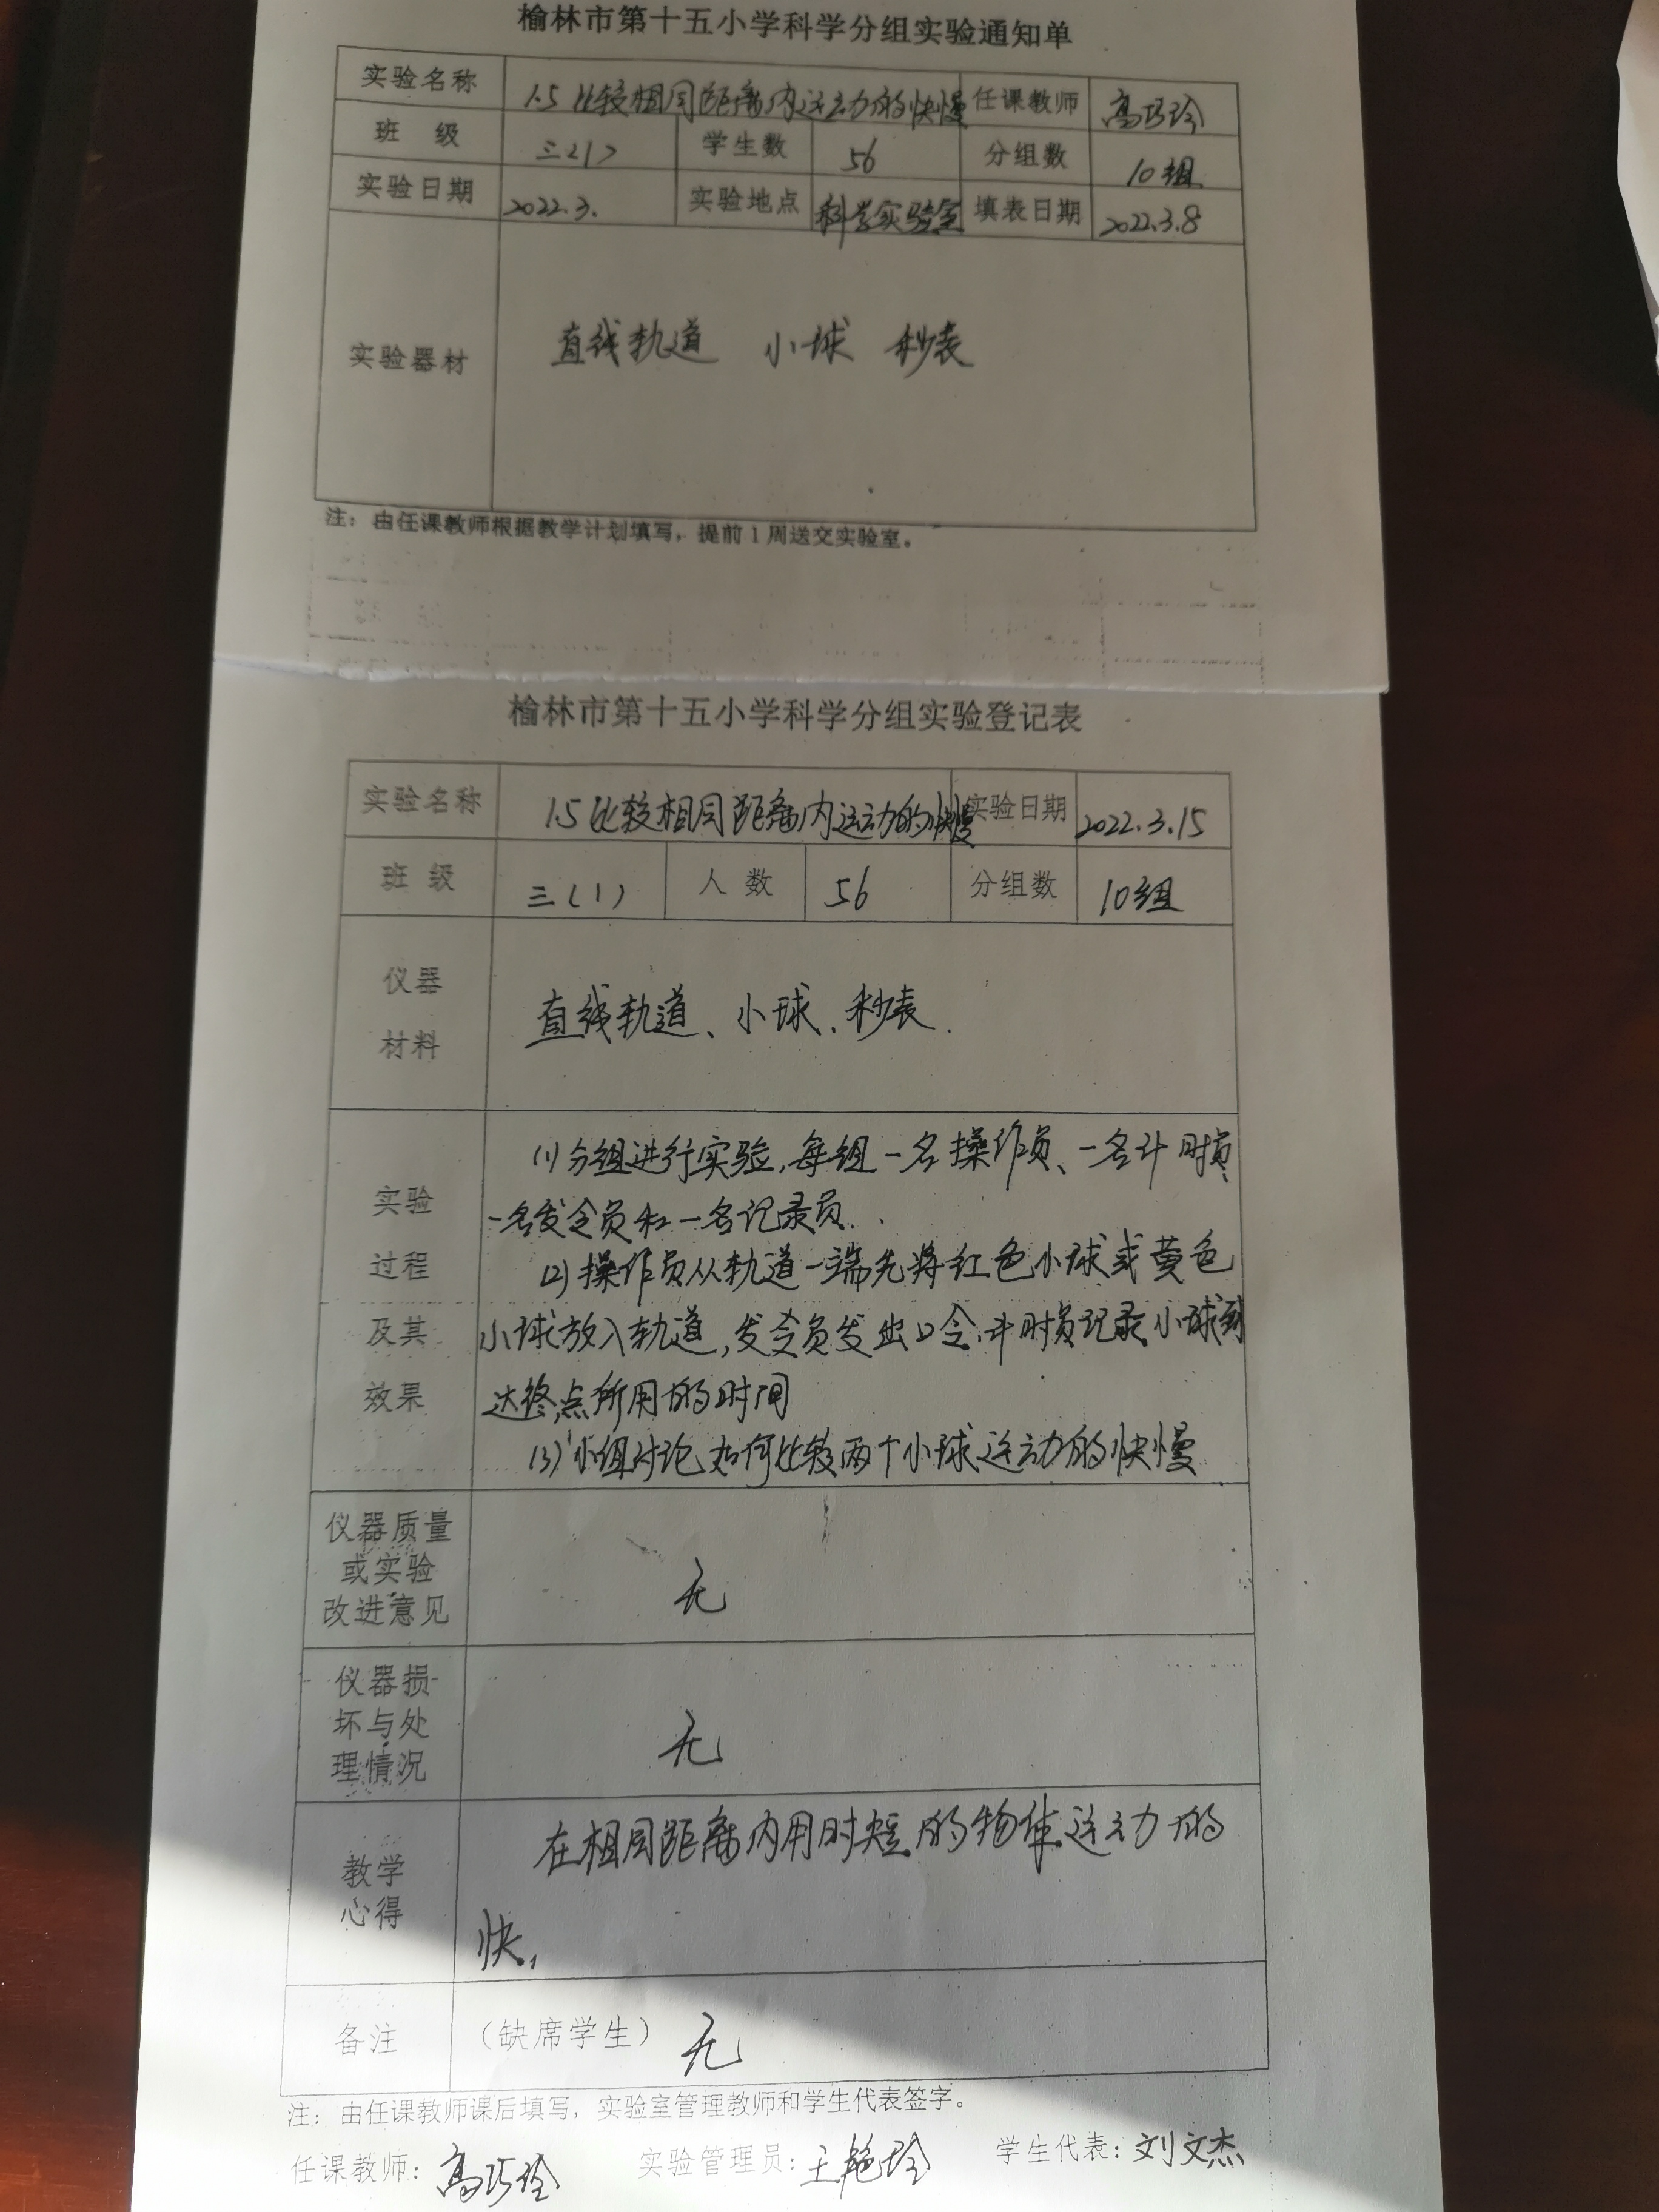 榆林市第十五小学科学分组实验通知单
实验名称 1.5 比较相同距离内运动的快慢 任课教师 高巧玲
班 级 三(1) 学生数 56 分组数 10组
实验日期 2022.3. 实验地点 科学实验室 填表日期 2022.3.8
实验器材 直线轨道 小球 秒表
注：由任课教师根据教学计划填写，提前1周送交实验室。
榆林市第十五小学科学分组实验登记表
实验名称 1.5 比较相同距离内运动的快慢 实验日期 2022.3.15
班 级 三(1) 人 数 56 分组数 10组
仪器
材料
直线轨道、小球、秒表.
实验
过程
及其
效果
(1)分组进行实验,每组一名操作员、一名计时员
一名发令员和一名记录员.
(2)操作员从轨道一端先将红色小球或黄色
小球放入轨道,发令员发出口令,计时员记录小球到
达终点所用的时间
(3)小组讨论,如何比较两个小球运动的快慢
仪器质量
或实验
改进意见
无
仪器损
坏与处
理情况
无
教学
心得
在相同距离内用时短的物体运动的
快,
备注 (缺席学生) 无
注：由任课教师课后填写，实验室管理教师和学生代表签字。
任课教师：高巧玲 实验管理员：王艳玲 学生代表：刘文杰